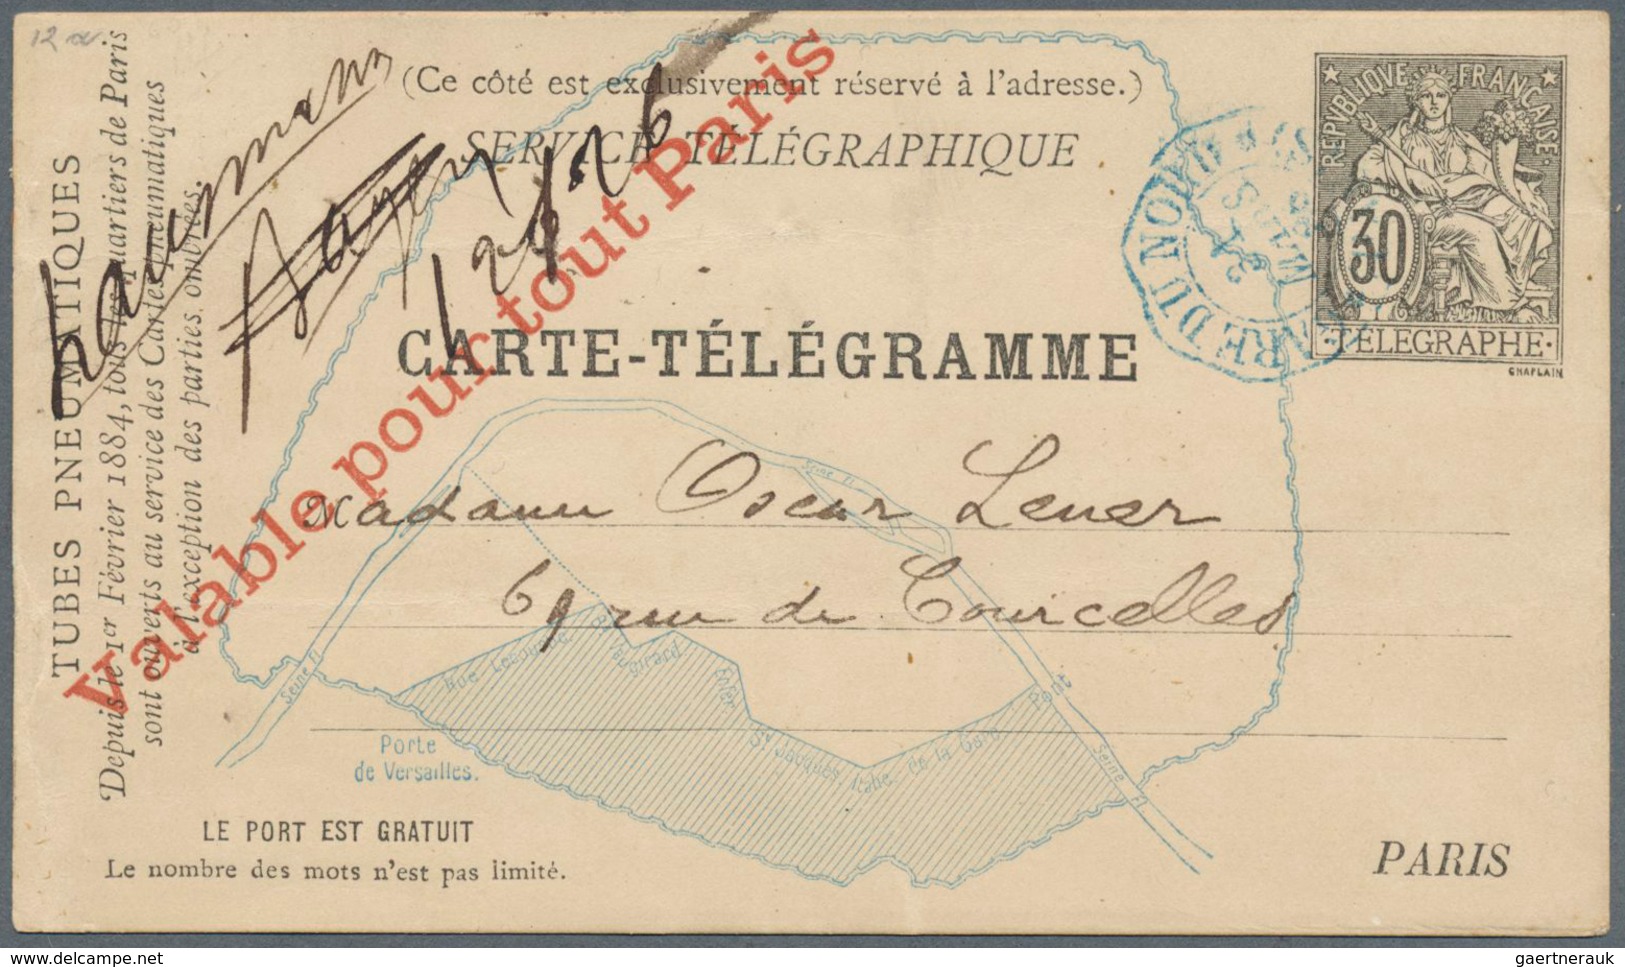 12a
(Ce côté est exclusivement réservé à l'adresse.)
SERVICE TÉLÉGRAPHIQUE
CARTE-TÉLÉGRAMME
REPVBLIQVE FRANÇAISE
30
TÉLÉGRAPHE
CHAPLAIN
GARE DU NORD
TUBES PNEUMATIQUES
Depuis le 1er Février 1884, tous les quartiers de Paris
sont ouverts au service des Cartes pneumatiques
à l'exception des parties ombrées.
Valable pour tout Paris
Madame Oscar Lener
69 rue de Courcelles
Seine Fl.
Seine Fl.
Rue Lecourbe
Bd Vaugirard
Enfer
St Jacques, Italie, de la Gare
Pont
Seine Fl.
Porte
de Versailles.
LE PORT EST GRATUIT
Le nombre des mots n'est pas limité.
PARIS
gaertnerauk